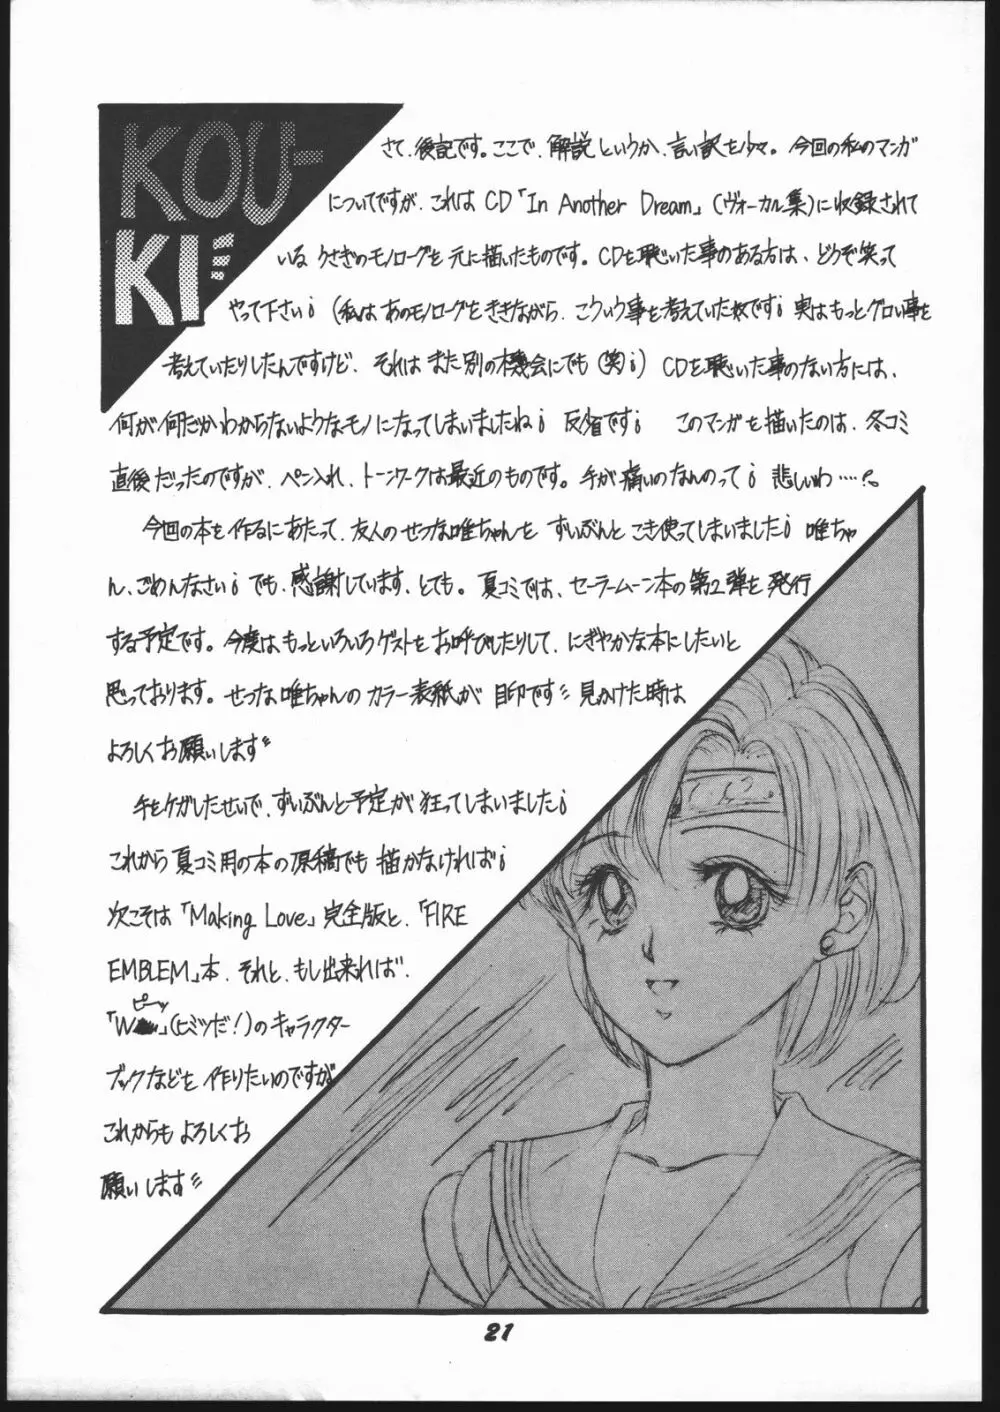 KOU-
KI
さて、後記です。ここで、解説というか、言い訳を少々。今回の私のマンガ
についてですが、これはCD「In Another Dream」(ヴォーカル集)に収録されて
いる うさぎのモノローグを元に描いたものです。CDを聴いた事のある方は、どうぞ笑って
やって下さい¡ (私はあのモノローグをききながら、こういう事を考えていた奴です¡ 実はもっとグロい事を
考えていたりしたんですけど、それはまた別の機会にでも(笑¡) CDを聴いた事のない方には、
何が何だかわからないようなモノになってしまいましたね¡ 反省です¡ このマンガを描いたのは、冬コミ
直後だったのですが、ペン入れ、トーンワークは最近のものです。手が痛いのなんのって¡ 悲しいわ……。
今回の本を作るにあたって、友人のせつな唯ちゃんを ずいぶんと こき使ってしまいました¡ 唯ちゃ
ん、ごめんなさい¡ でも、感謝しています、とても。夏コミでは、セーラームーン本の第2弾を発行
する予定です。今度はもっといろいろゲストをお呼びしたりして、にぎやかな本にしたいと
思っております。せつな唯ちゃんのカラー表紙が目印です〃 見かけた時は
よろしくお願いします〃
手をケガしたせいで、ずいぶんと予定が狂ってしまいました¡
これから夏コミ用の本の原稿でも描かなければ¡
次こそは「Making Love」完全版と、「FIRE
EMBLEM」本、それと、もし出来れば、
ピーッ
「W」(ヒミツだ!)のキャラクター
ブックなどを作りたいのですが
これからもよろしくお
願いします〃
21